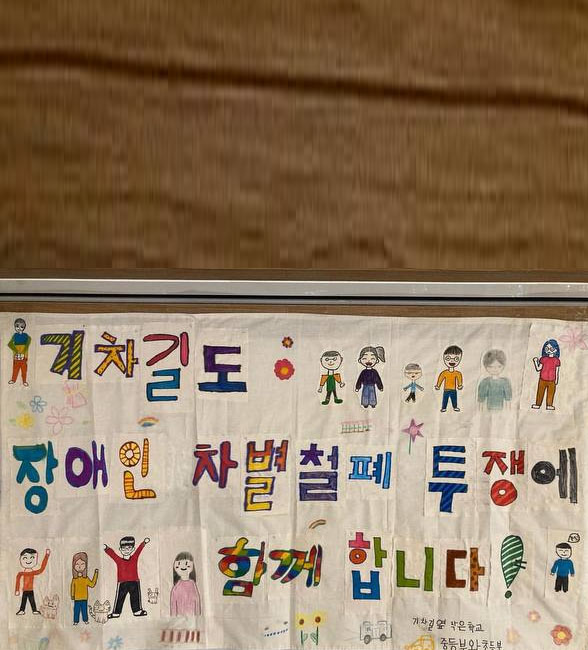 기차길도
장애인 차별철폐 투쟁에
함께 합니다!
기차길옆 작은학교
중등부와 초등부